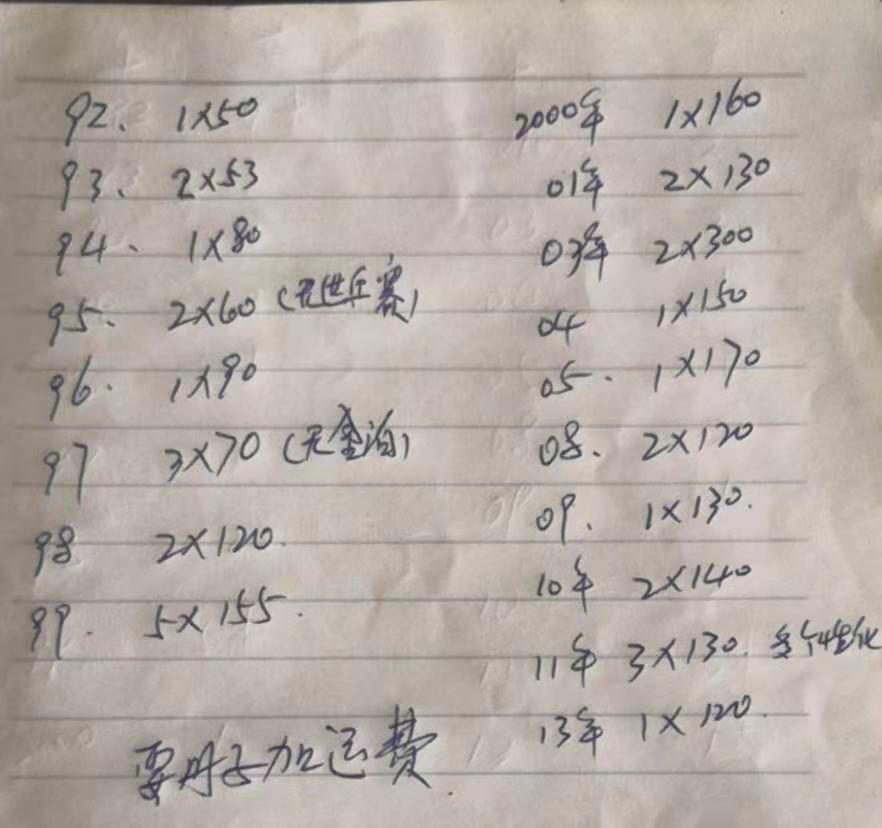 92、 1×50
93、 2×53
94、 1×80
95、 2×60 (无世乒赛)
96. 1×90
97 3×70 (无金泊)
98 2×120.
99. 5×155.
2000年 1×160
01年 2×130
03年 2×300
04 1×150
05. 1×170
08、 2×120
09、 1×130.
10年 2×140
11年 3×130. 多个性化
13年 1×120.
要册子加运费